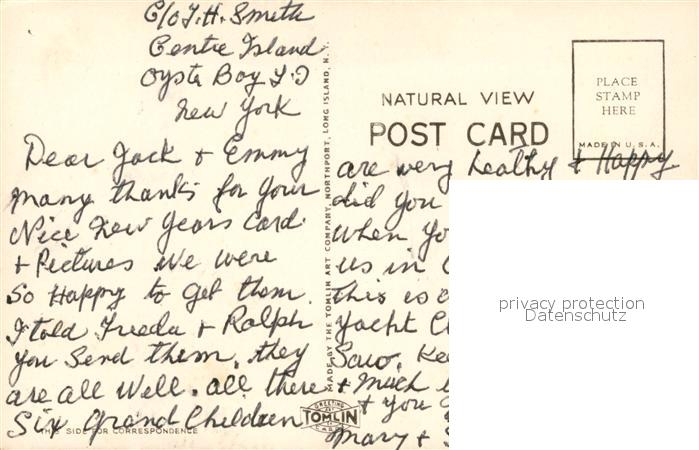 C/o J. H. Smith
Centre Island
Oyste Bay L.I
New York
Dear Jack + Emmy
many thanks for your
Nice New Years Card
+ Pictures we were
So Happy to get them.
I told Freeda + Ralph
you Send them. they
are all well. all there
Six Grand Children
THIS SIDE FOR CORRESPONDENCE
MADE BY THE TOMLIN ART COMPANY, NORTHPORT, LONG ISLAND, N.Y.
GREETING
TOMLIN
CARDS
NATURAL VIEW
POST CARD
PLACE
STAMP
HERE
MADE IN U.S.A.
are very healthy + Happy
did you
when
us in
this is
yacht
Saw.
+ much
+ you
mary +
privacy protection
Datenschutz